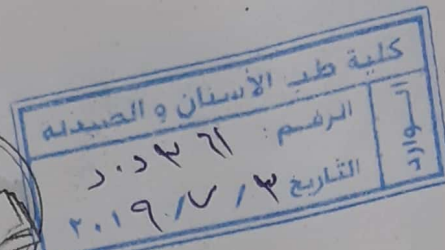 كلية طب الأسنان و الصيدله
الوارد
الرقم: ٣٦١ د.د
التاريخ ٣ / ٧ / ٢٠١٩